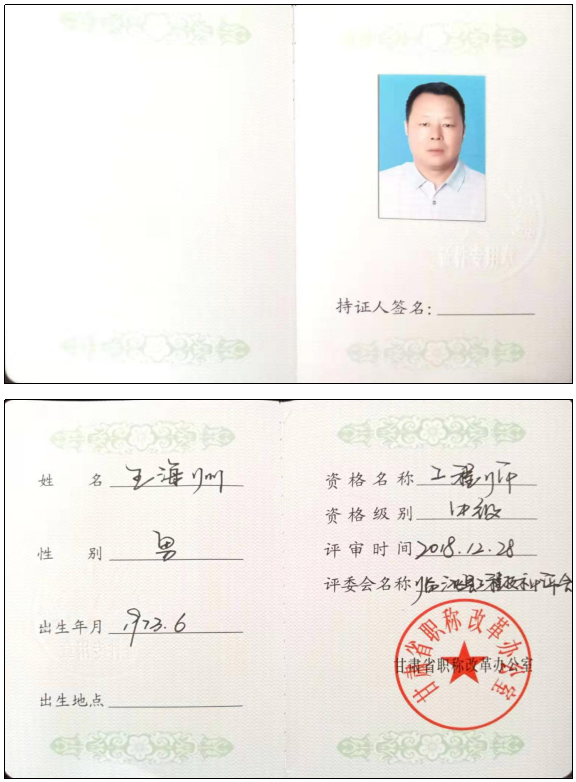 持证人签名:
姓 名 王海
性 别 男
出生年月 1973.6
出生地点
资格名称 工程师
资格级别 中级
评审时间 2018.12.28
评委会名称 临
甘肃省职称改革办公室
甘肃省职称改革办公室